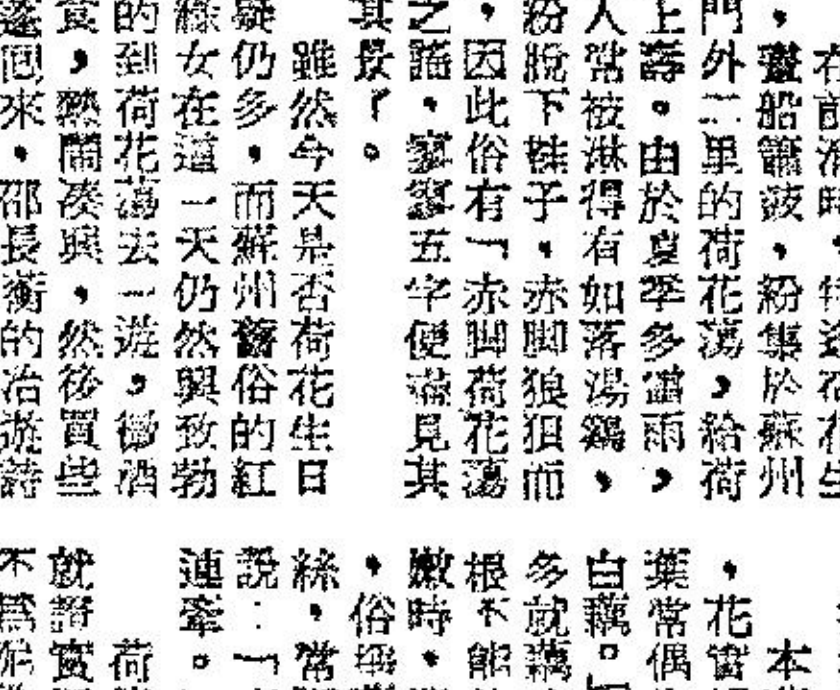 在前清時，特逢荷花生
，畫船簫鼓，紛集於蘇州
門外二里的荷花蕩，給荷
上壽。由於夏季多雷雨，
人常被淋得有如落湯鷄，
紛脫下鞋子，赤脚狼狽而
，因此俗有「赤脚荷花蕩
之謠，寥寥五字便盡見其
其景了。
雖然今天是否荷花生日
疑仍多，而蘇州舊俗的紅
綠女在這一天仍然興致勃
的到荷花蕩去一遊，備酒
食，熱鬧湊興，然後買些
蓬回來，邵長蘅的冶遊詩
本
，花
葉常偶
白藕。
多就藕
根不能
嫩時，
，俗
絲，常
說：「
連牽。
荷
就證實
不爲